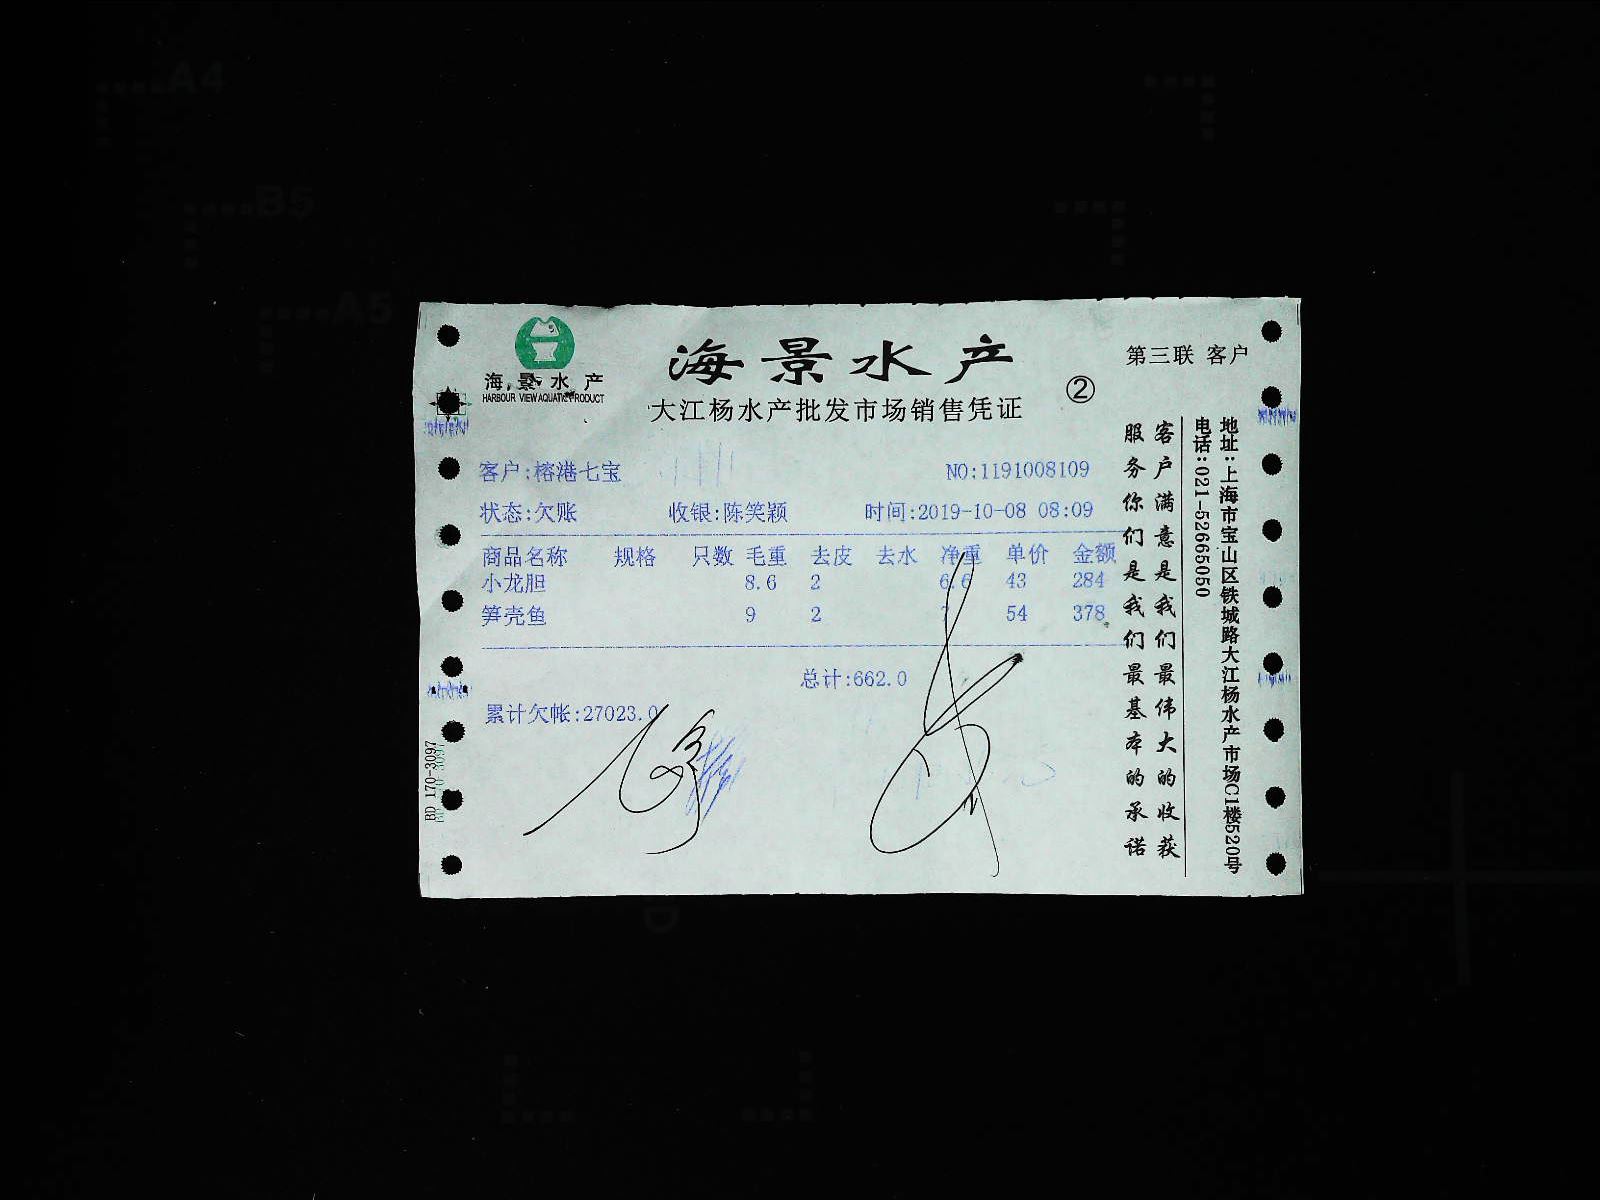 A4
B5
A5
海景水产
HARBOUR VIEW AQUATIC PRODUCT
海景水产
大江杨水产批发市场销售凭证
②
第三联 客户
客户:榕港七宝
NO:1191008109
状态:欠账 收银:陈笑颖 时间:2019-10-08 08:09
商品名称 规格 只数 毛重 去皮 去水 净重 单价 金额
小龙胆 8.6 2 6.6 43 284
笋壳鱼 9 2 7 54 378
总计:662.0
累计欠帐:27023.0
客户满意是我们最伟大的收获
服务你们是我们最基本的承诺
地址:上海市宝山区铁城路大江杨水产市场C1楼520号
电话:021-52665050
BD 170-3097